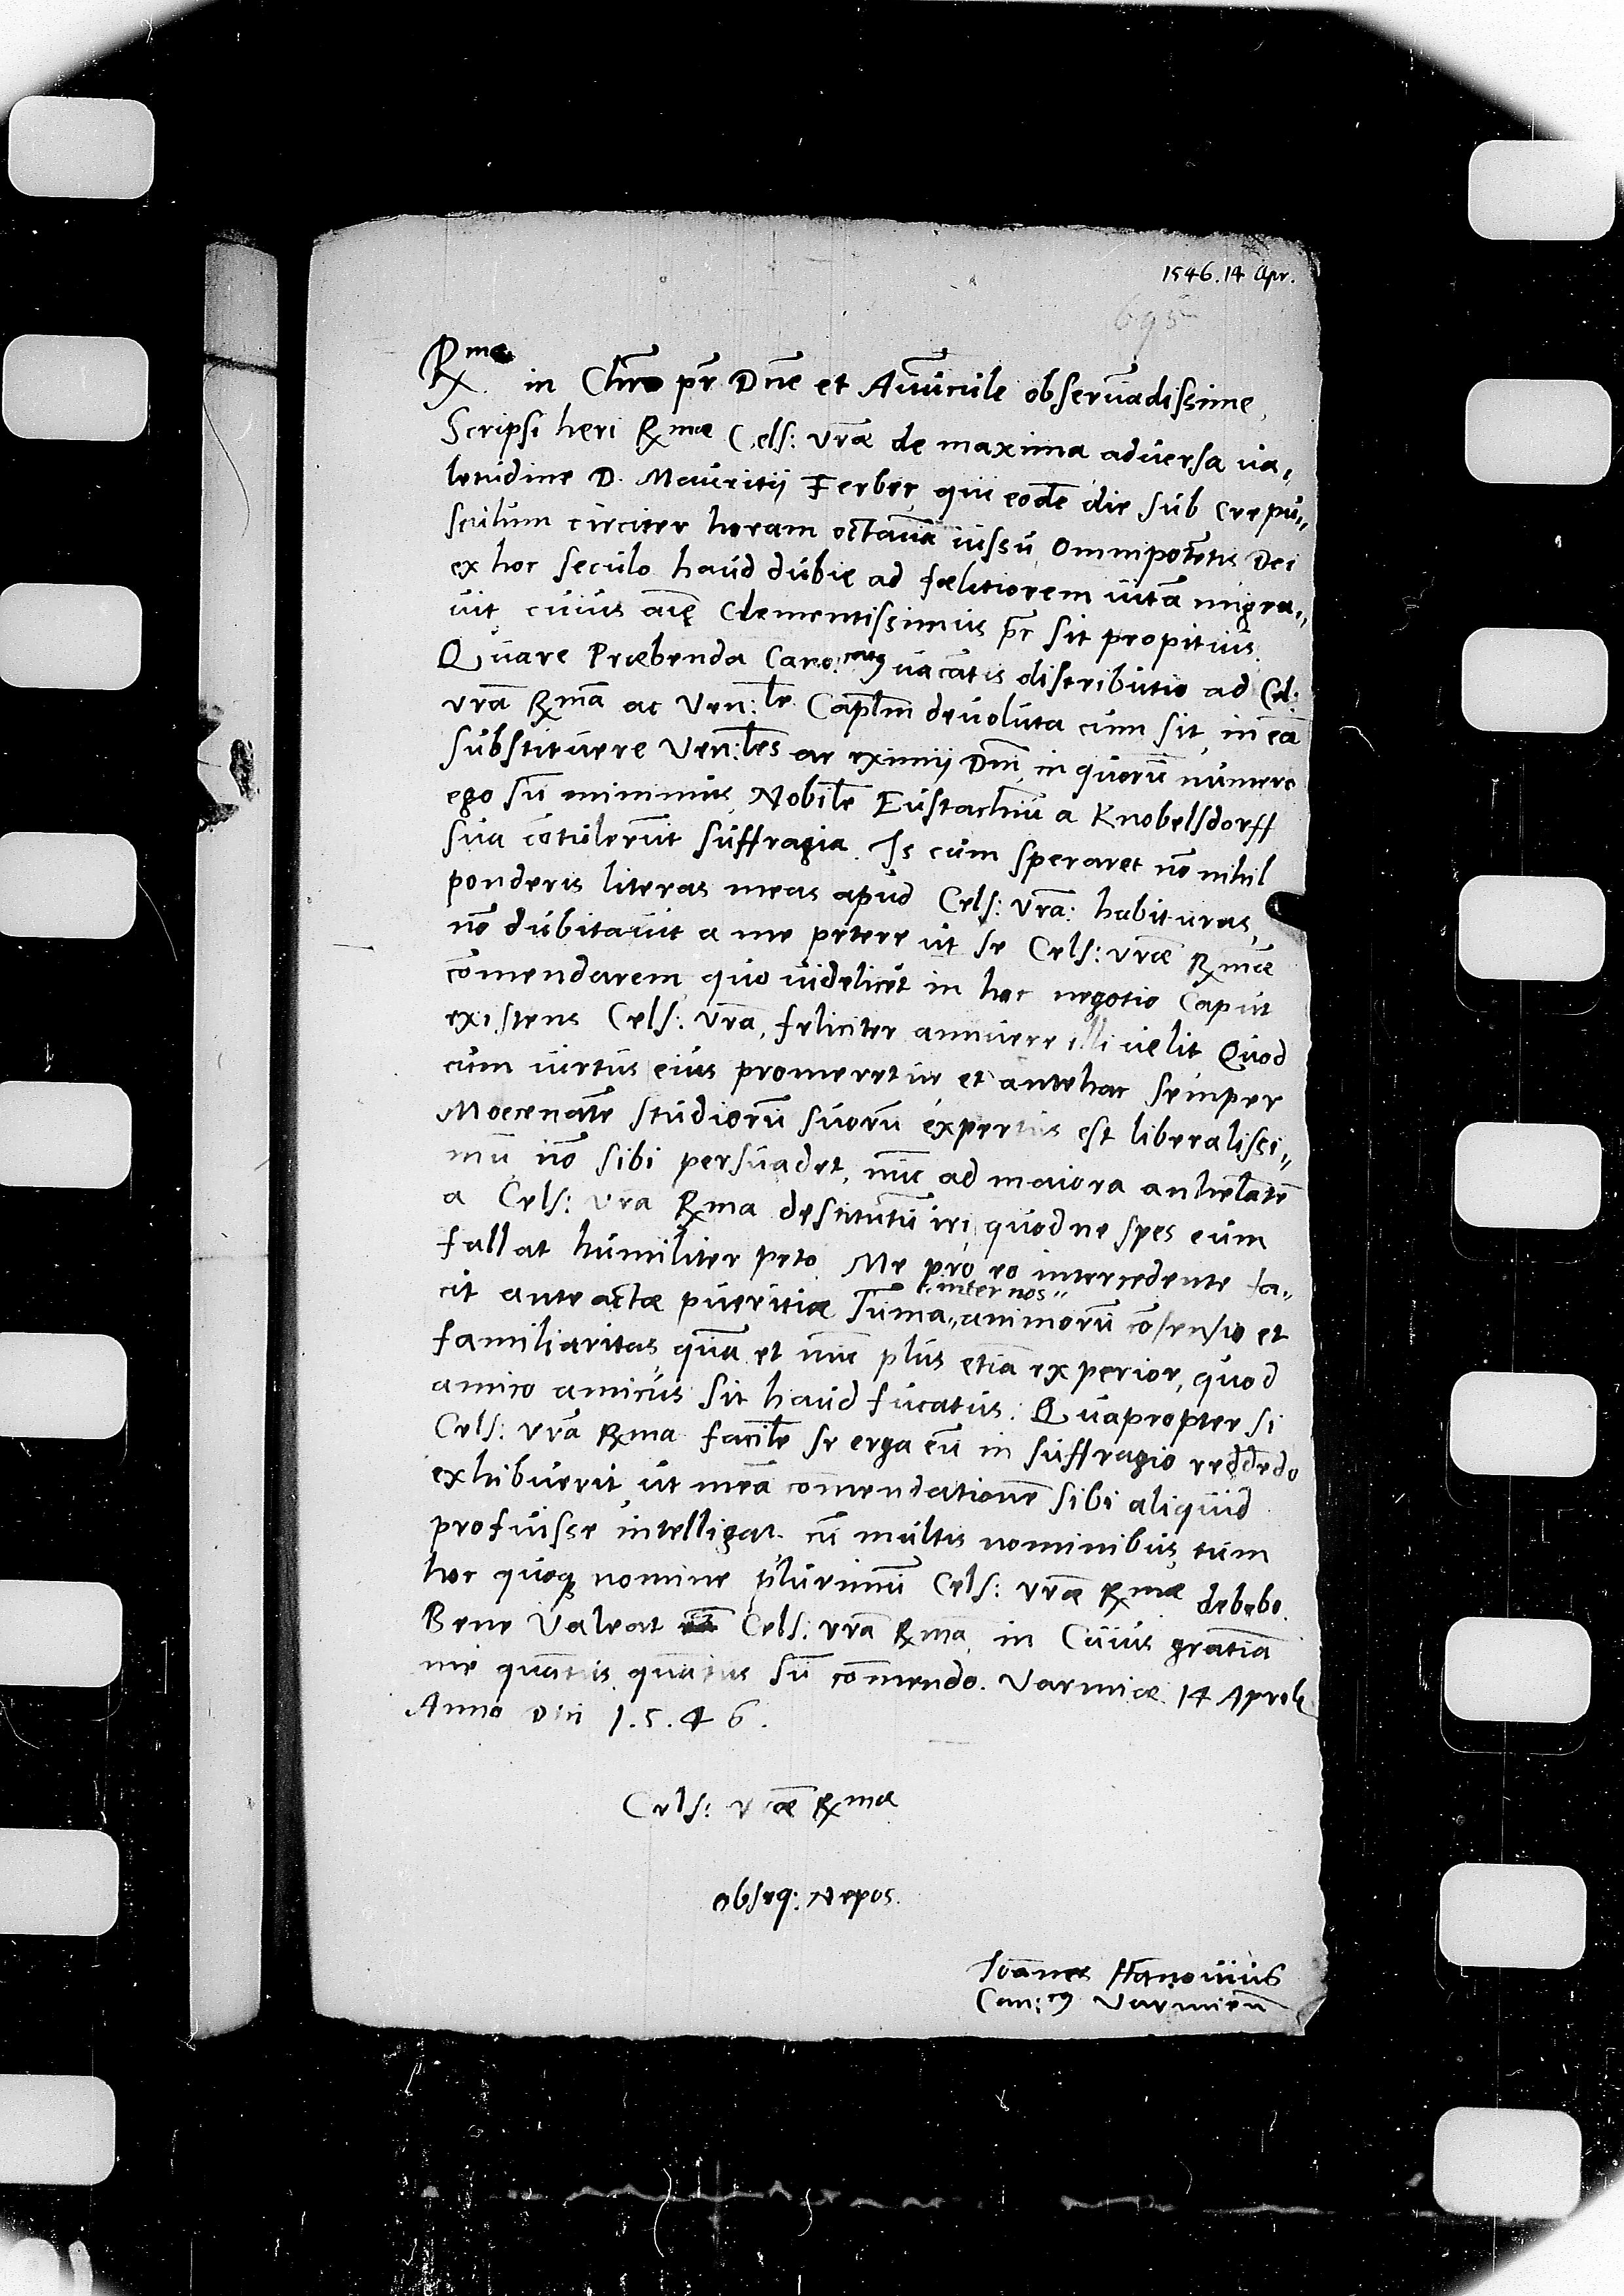 1546. 14 Apr.
695
Rme in Chro pr Dne et Avuncule observadissime,
Scripsi heri Rmae Cels: vrae de maxima adversa va„
letudine D. Mauritii Ferber, qui eode die sub crepu„
sculum circiter horam octava iussu omnipotetis Dei
ex hoc seculo haud dubie ad foelitiorem vita migra„
vit, cuius aie Clementissimus pr sit propitius.
Quare Praebenda Cano:catus vacatis distributio ad Cel:
vra Rma ac Ven:le Caplm devoluta cum sit, in ea
substituere Ven:les ac eximii Dni, in quoru numero
ego su minimus, Nobile Eustachiu a Knobelsdorff
sua cotulerut suffragia. Is cum speraret no nihil
ponderis literas meas apud Cels: vra: habituras,
no dubitavit a me petere, ut se Cels: vrae Rmae
comendarem, quo videlicet in hoc negotio Caput
existens Cels: vra, feliciter annuere illi velit. Quod
cum virtus eius promeretur et antehac semper
Moecenate studioru suoru expertus est liberalissi„
mu no sibi persuadet, nuc ad maiora anhelate
a Cels: vra Rma destitutu iri, quod ne spes eum
fallat humiliter peto. Me pro eo intercedente fa„
„inter nos„
cit ante actae pueritiae suma„ animoru cosensio et
familiaritas, qua et nuc plus etia experior, quod
amico amicus sit haud fucatus. Quapropter si
Cels: vra Rma facile se erga eu in suffragio reddedo
exhibuerit, ut mea comendatione sibi aliquid
profuisse intelligat. cu multis nominibus, tum
hoc quoq nomine plurimu Cels: vrae Rmae debebo.
Bene Valeat Cels: vra Rma, in Cuius gratia
me quatus quatus su comendo. Varmiae 14 Aprilis
Anno Dni 1.5.46.
Cels: vrae Rmae
obseq: Nepos.
Ioannes Hanovius
Can:cus Varmien